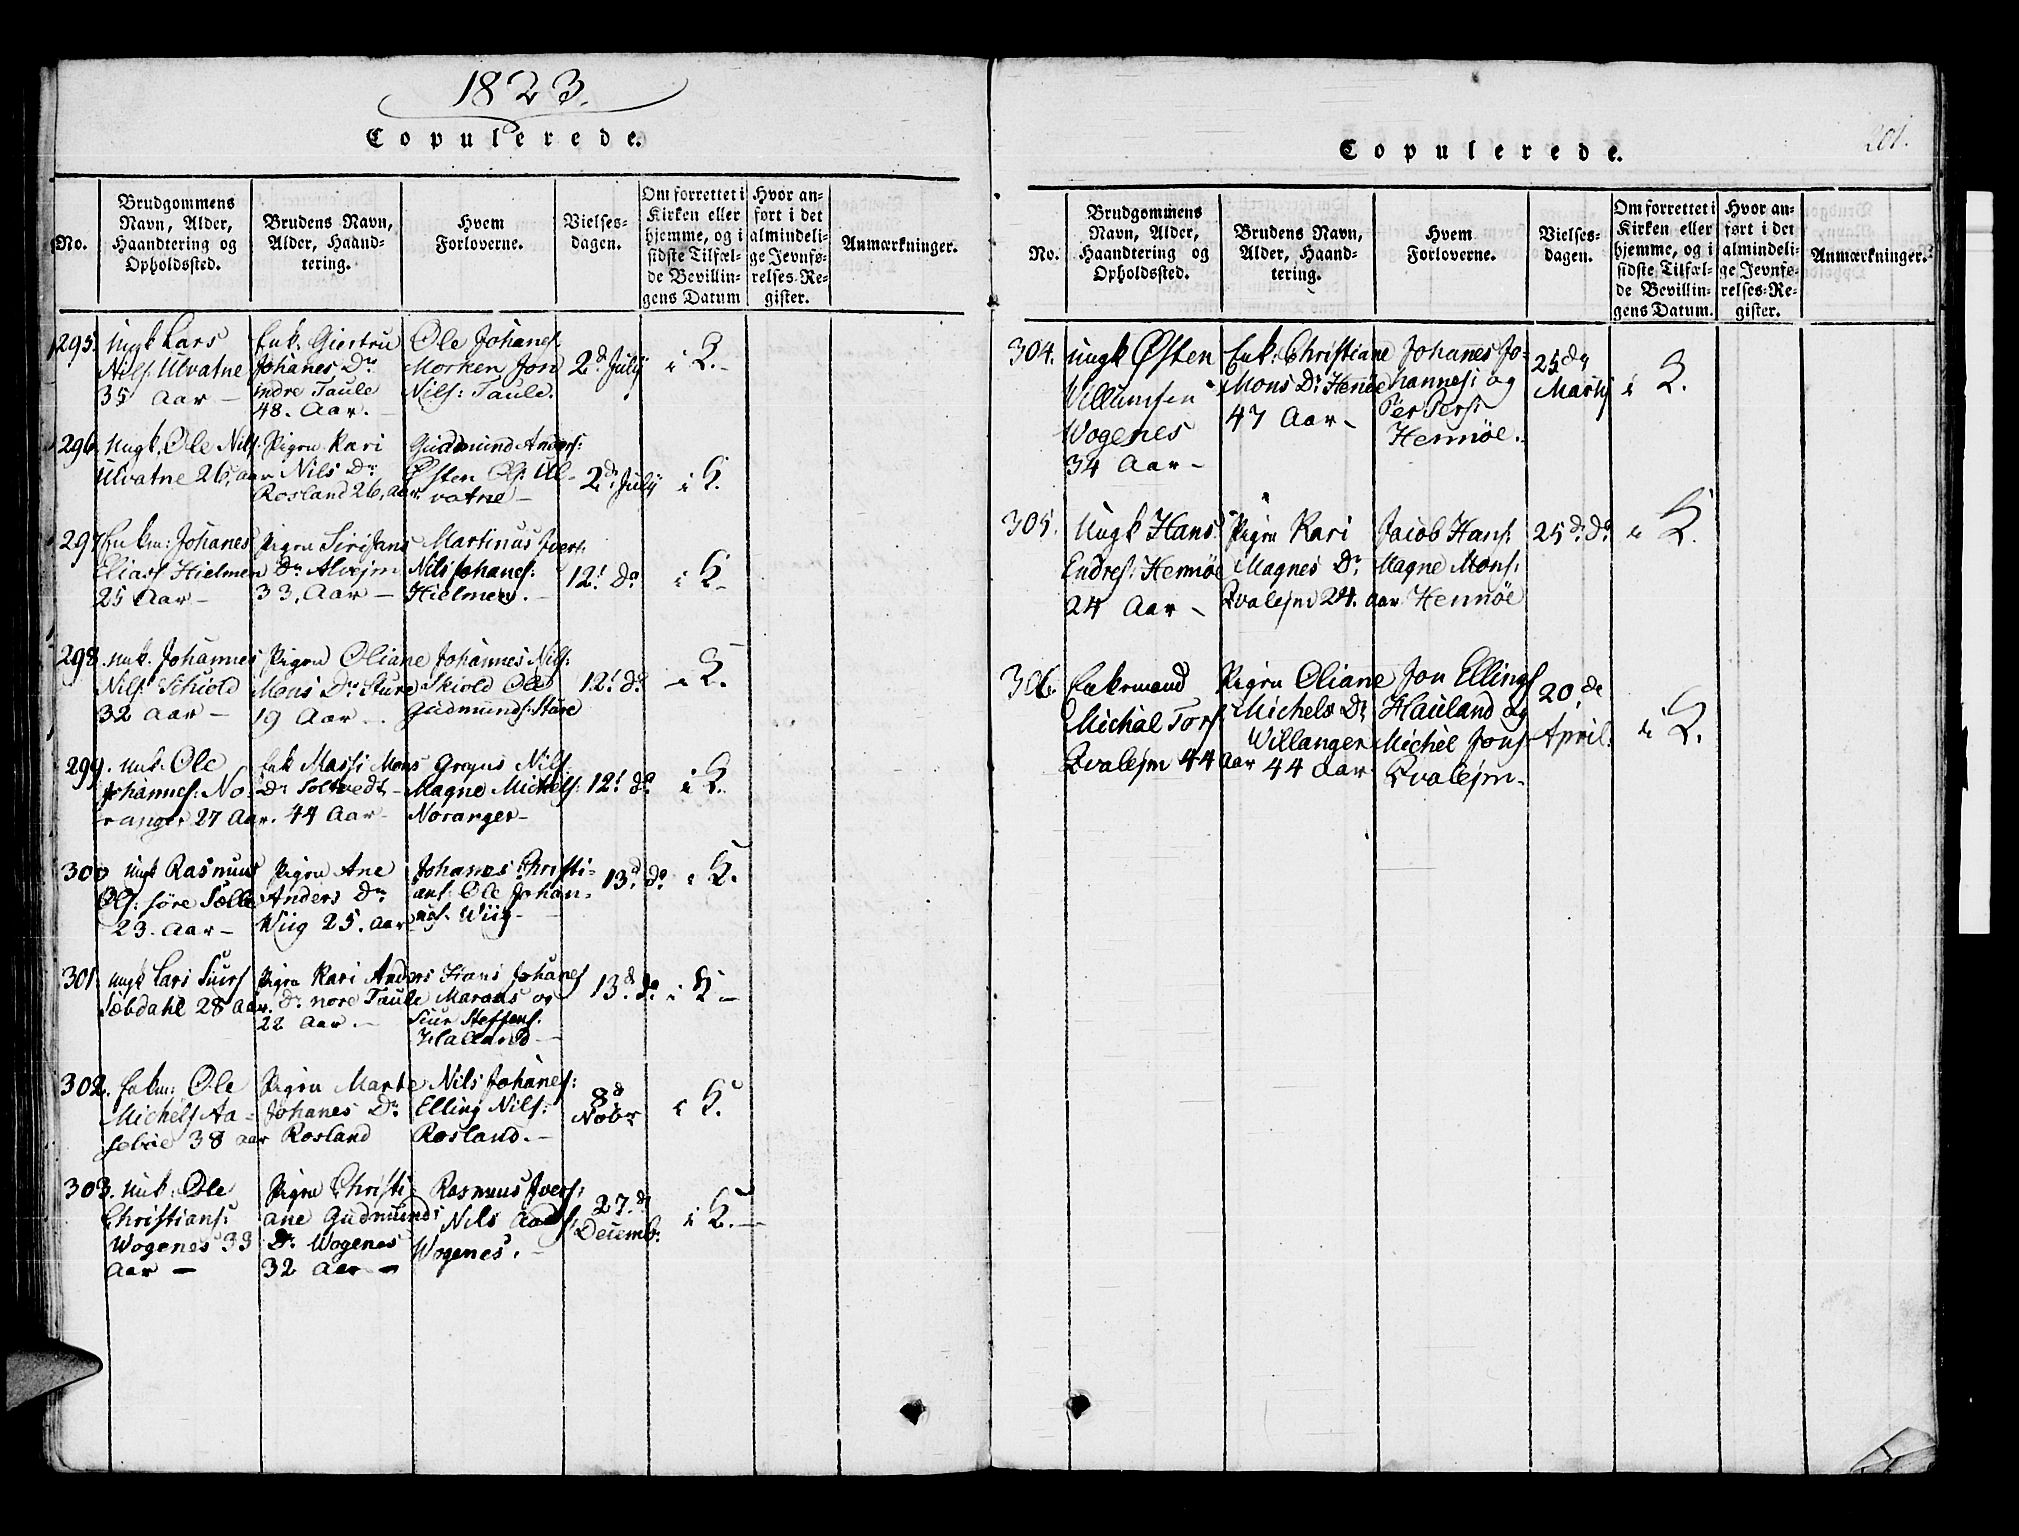 1823.
Copulerede.
No.
Brudgommens Navn, Alder, Haandtering og Opholdssted.
Brudens Navn, Alder, Haandtering.
Hvem Forloverne.
Vielsesdagen.
Om forrettet i Kirken eller hjemme, og i sidste Tilfælde Bevillingens Datum
Hvor anført i det almindelige Jevnførelses-Register.
Anmærkninger.
295. Ungk Lars Enk. Giertru Ole Johanes:
Nils: Ulvatne Johanes Dr Morken Jon 2d July i K.
35 Aar – indre Taule Nils: Taule.
48. Aar. –
296. Ungk. Ole Nils: Pigen Kari Gudmund Anders:
Ulvatne 26, aar Nils Dr Østen Ols: Ul- 2d July i K.
Rosland 26, aar vatne –
297 Enkm: Johanes Pigen Siri Hans Martinus Iver:
Elias: Hielmen Dr Alvejm Nils Johanes: 12t do i K.
25 Aar – 33, Aar – Hielmen. –
298. unk. Johannes Pigen Oliane Johannes Nils:
Nils: Schiold Mons Dr Sture Skiold Ole 12t do i K.
32 aar – 19 Aar. . Gudmunds: Sture
299. unk. Ole Enk Massi Mons Gregus Nils
Johannes: No- Dr Soltvedt – Magne Michels: 12t do i K.
ranger 27 Aar. 44 Aar – Noranger –
300 ungk Rasmus Pigen Ane Johanes Christi-
Ols: søre Sælle Anders Dr ans: Ole Johan- 13d do i K.
23. Aar – Wiig 25. Aar nes. Wiig –
301. ungk Lars Siurs Pigen Kari Anders Hans Johanes
Sæbdahl 28 aar. Dr nore Taule Maraas og 13d do i K –
22 Aar. – Siur Steffens.
Halland –
302. Enkm: Ole Pigen Marte Nils Johanes:
Michels Aa- Johanes Dr. Elling Nils: 8d Nobr i K.
sebøe 38 aar Rosland Rosland. –
303. unk: Ole Pigen Christi- Rasmus Ivers:
Christians: ane Gudmunds Nils 27.de Decemb: i K. –
Wogenes 33 Dr. Wogenes Wogenes. –
Aar – 32 Aar –
Copulerede.
201.
No.
Brudgommens Navn, Alder, Haandtering og Opholdssted.
Brudens Navn, Alder, Haandtering.
Hvem Forloverne.
Vielsesdagen.
Om forrettet i Kirken eller hjemme, og i sidste Tilfælde Bevillingens Datum.
Hvor anført i det almindelige Jevnførelses-Register.
Anmærkninger.
304. Ungk Østen Enk: Christiane Johanes Jo-
Villumsen Mons Dr Hennøe hannes: og 25de Martij i K.
Wogenes 47 Aar – Per Pers:
34 Aar – Hennøe.
305. Ungk Hans Pigen Kari Jacob Hans: 25d do i K.
Endres: Hennøe Magnes Dr Magne Mons:
24 Aar – Qvalejm 24. aar Hennøe
306. Enkemand Pigen Oliane Jon Ellings
Michal Tors: Michels Dr Hauland og 20.de April. i K.
Qvalejm 44 Aar Willanger Michel Jons
44 aar Qvalejm.